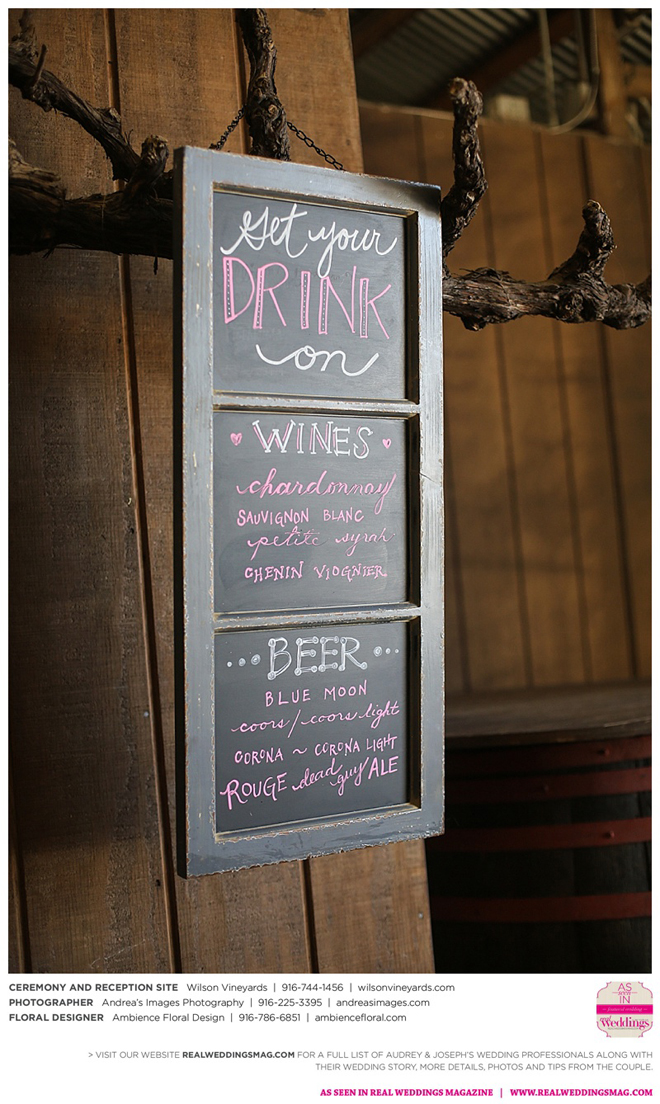 Get your
DRINK
on
WINES
chardonnay
SAUVIGNON BLANC
petite syrah
CHENIN VIOGNIER
BEER
BLUE MOON
coors/coors light
CORONA ~ CORONA LIGHT
ROUGE dead guy ALE
CEREMONY AND RECEPTION SITE Wilson Vineyards | 916-744-1456 | wilsonvineyards.com
PHOTOGRAPHER Andrea's Images Photography | 916-225-3395 | andreasimages.com
FLORAL DESIGNER Ambience Floral Design | 916-786-6851 | ambiencefloral.com
AS
seen
IN
featured wedding
real
Weddings
> VISIT OUR WEBSITE REALWEDDINGSMAG.COM FOR A FULL LIST OF AUDREY & JOSEPH'S WEDDING PROFESSIONALS ALONG WITH
THEIR WEDDING STORY, MORE DETAILS, PHOTOS AND TIPS FROM THE COUPLE.
AS SEEN IN REAL WEDDINGS MAGAZINE | WWW.REALWEDDINGSMAG.COM